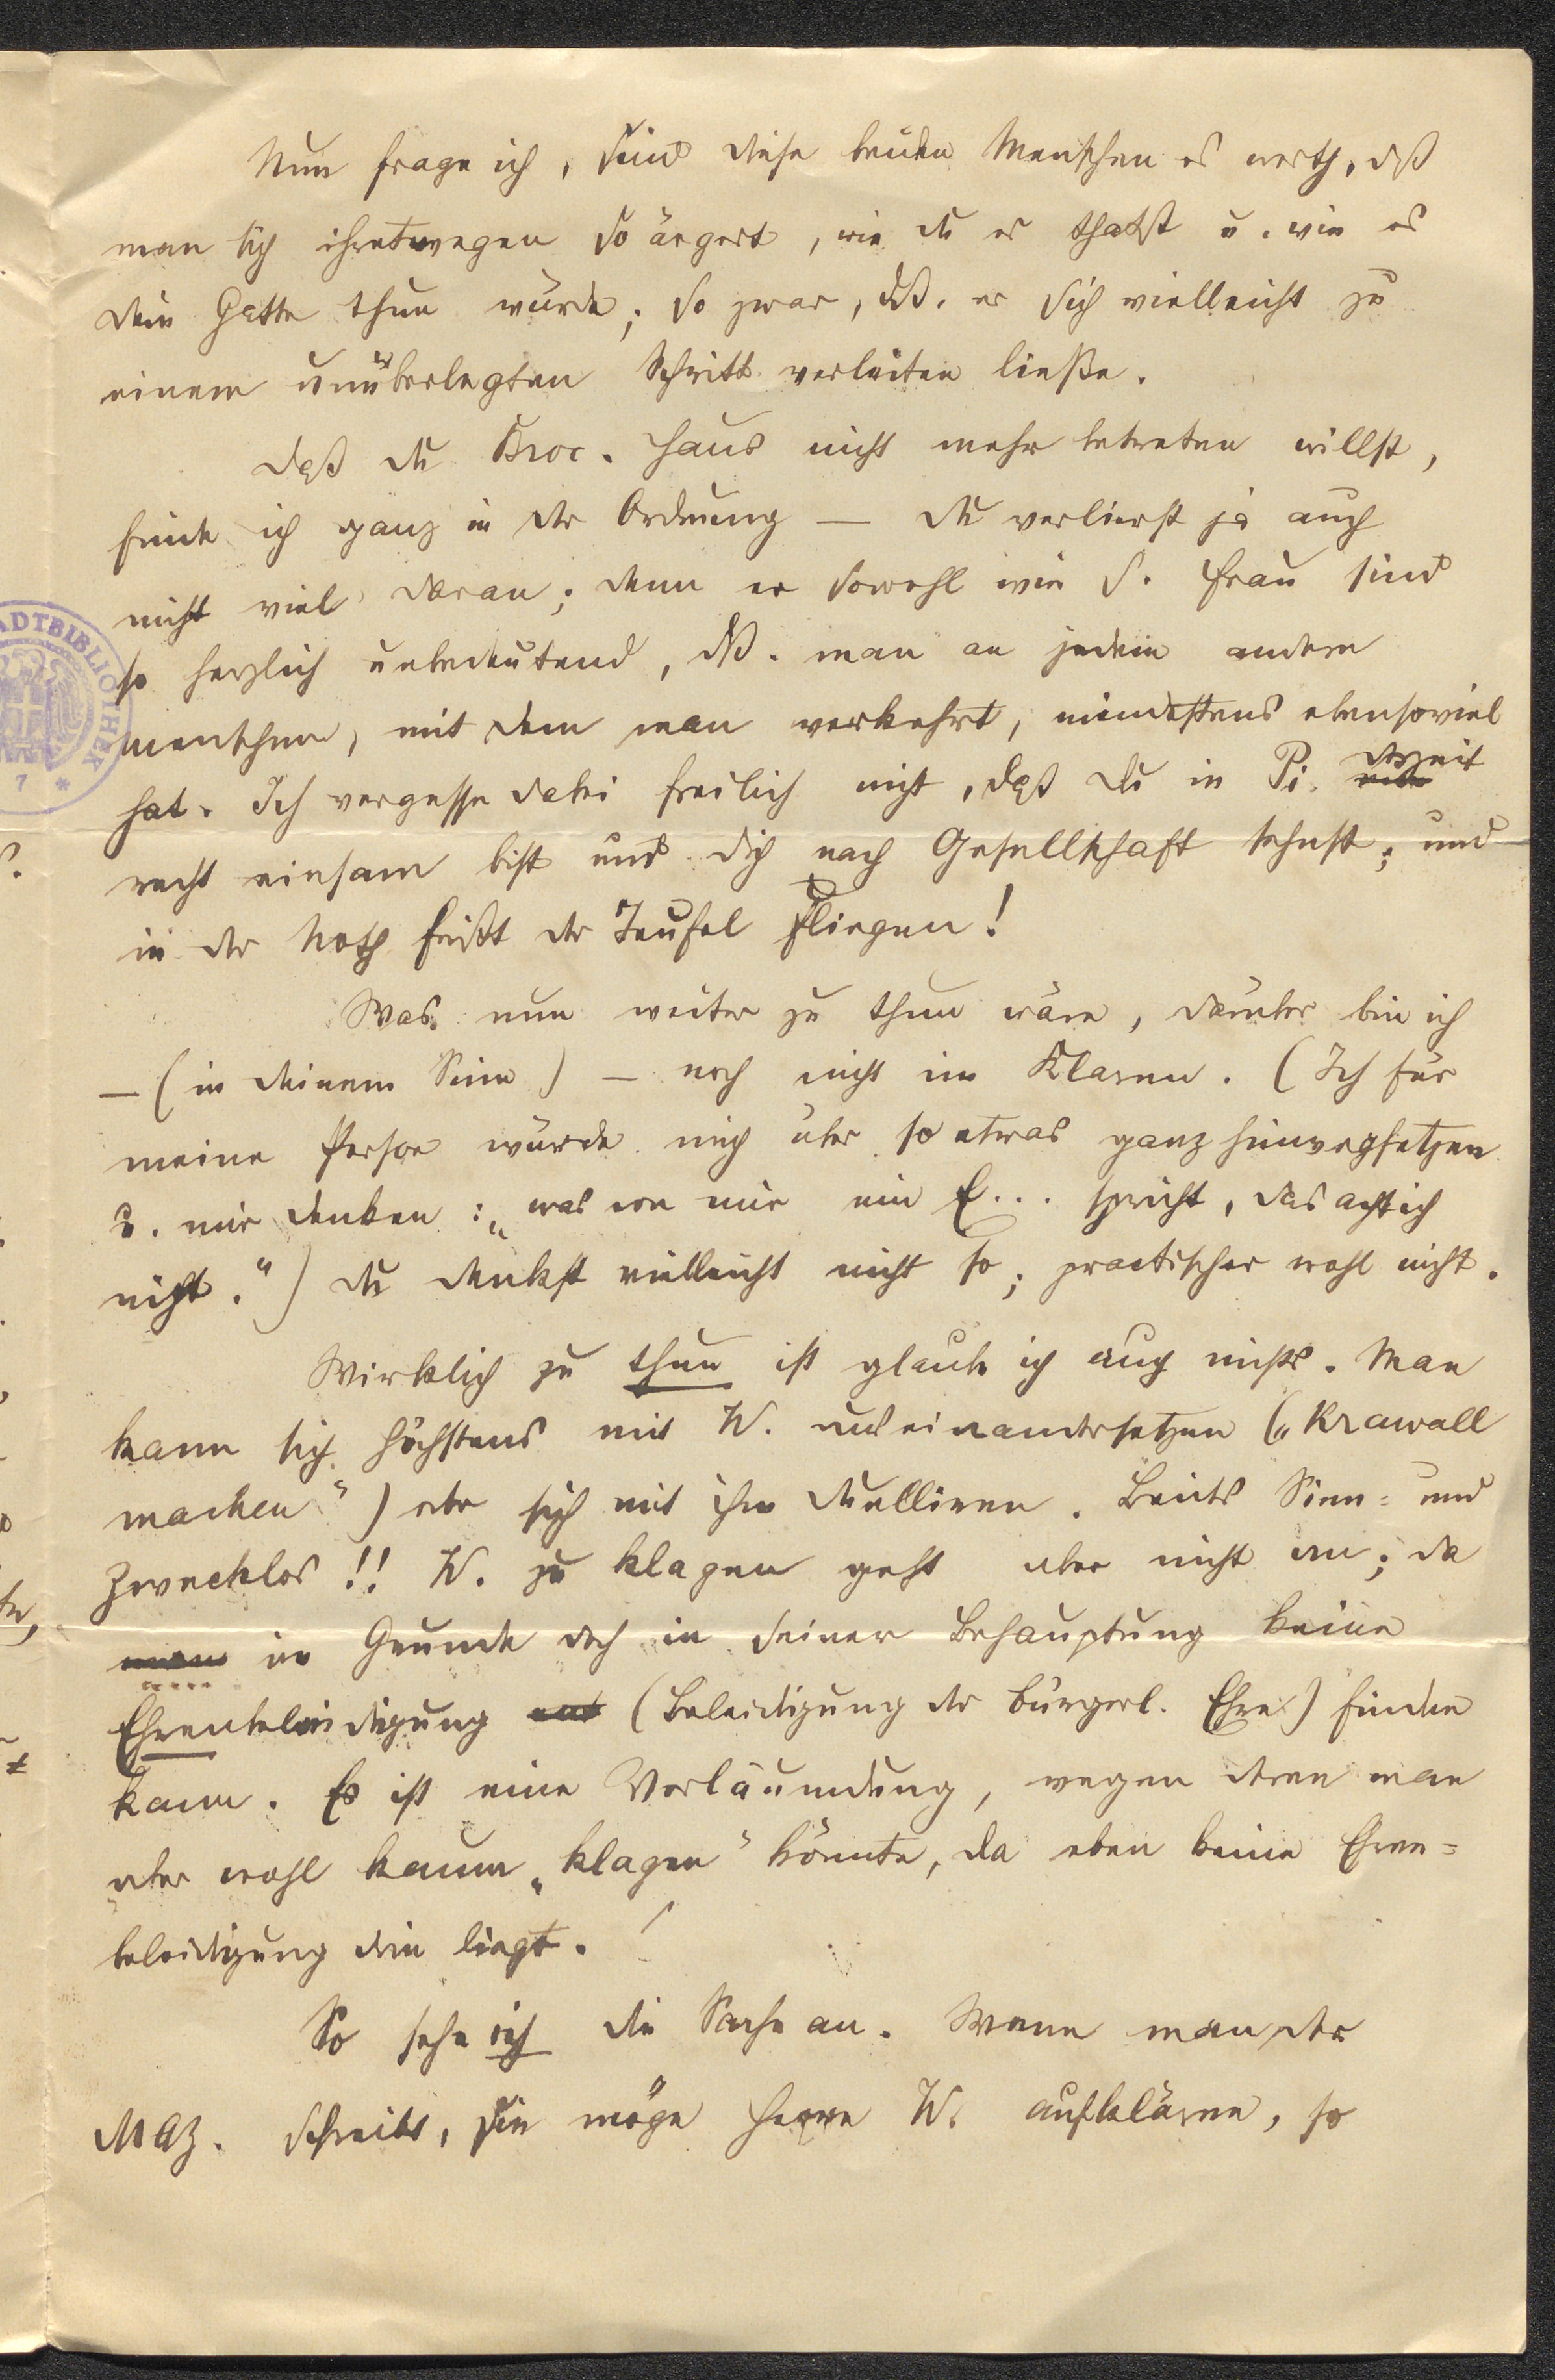 Nun frage ich, sind diese beiden Menschen es werth, dß
man sich ihretwegen so ärgert, wie du es thatst u. wie es
dein Gatte thun würde; so zwar, dß. er sich vielleicht zu
einem unüberlegten Schritt verleiten ließe.
Daß du Broc. Haus nicht mehr betreten willst,
finde ich ganz in der Ordnung — du verlierst ja auch
nicht viel daran; denn er sowohl wie s. Frau sind
so herzlich unbedeutend, dß. man an jedem andern
Menschen, mit dem man verkehrt, mindestens ebensoviel
hat. Ich vergesse dabei freilich nicht, daß du in Pi. derzeit
recht einsam bist und dich nach Gesellschaft sehnst; und
in der Noth frißt der Teufel Fliegen!
Was nun weiter zu thun wäre, darüber bin ich
— (in deinem Sinne) — noch nicht im Klaren. (Ich für
meine Person würde mich über so etwas ganz hinwegsetzen
u. mir denken: „was von mir ein E... spricht, das acht ich
nicht.") du denkst vielleicht nicht so; practischer wohl nicht.
Wirklich zu thun ist glaube ich auch nichts. Man
kann sich höchstens mit W. auseinandersetzen („Krawall
machen") oder sich mit ihm duelliren. Beides Sinn= und
Zwecklos!! W. zu klagen geht aber nicht an; da
man im Grunde doch in seiner Behauptung keine
Ehrenbeleidigung (Beleidigung der bürgerl. Ehre) finden
kann. Es ist eine Verläumdung, wegen deren man
aber wohl kaum „klagen" könnte, da eben keine Ehren=
beleidigung drin liegt.
So sehe ich die Sache an. Wenn man der
Maz. schreibt, sie möge Herrn W. aufklären, so
STADTBIBLIOTHEK
7 *